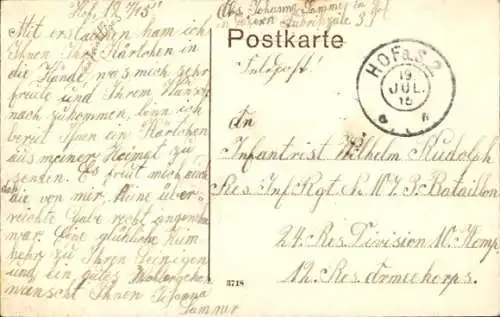 Hof, 18/7 15.
Mit erstaunen hab ich
Ihnen Ihr Kärtchen in
die Hände, was mich sehr
freute und Ihrem Wunsch
nach zukommen, bin ich
bereit Ihnen ein Kärtchen
aus meiner Heimat zu
senden. Es freut mich auch
daß die von mir, kleine über-
reichte Gabe recht angenehm
war. Eine glückliche Heim
kehr zu Ihren Seinigen
und ein gutes Wohlergehen
wünscht Ihnen Johanna
Sammer
Abs. Johanna Sammer in Hof
in Bayern
Postkarte
Feldpost!
HOF a. S. 2
19
JUL.
15
An
Infantrist Wilhelm Rudolph
Res Inf Rgt N. 107 3. Bataillon
24. Res Division 10. Komp.
12. Res. Armeekorps.
3718